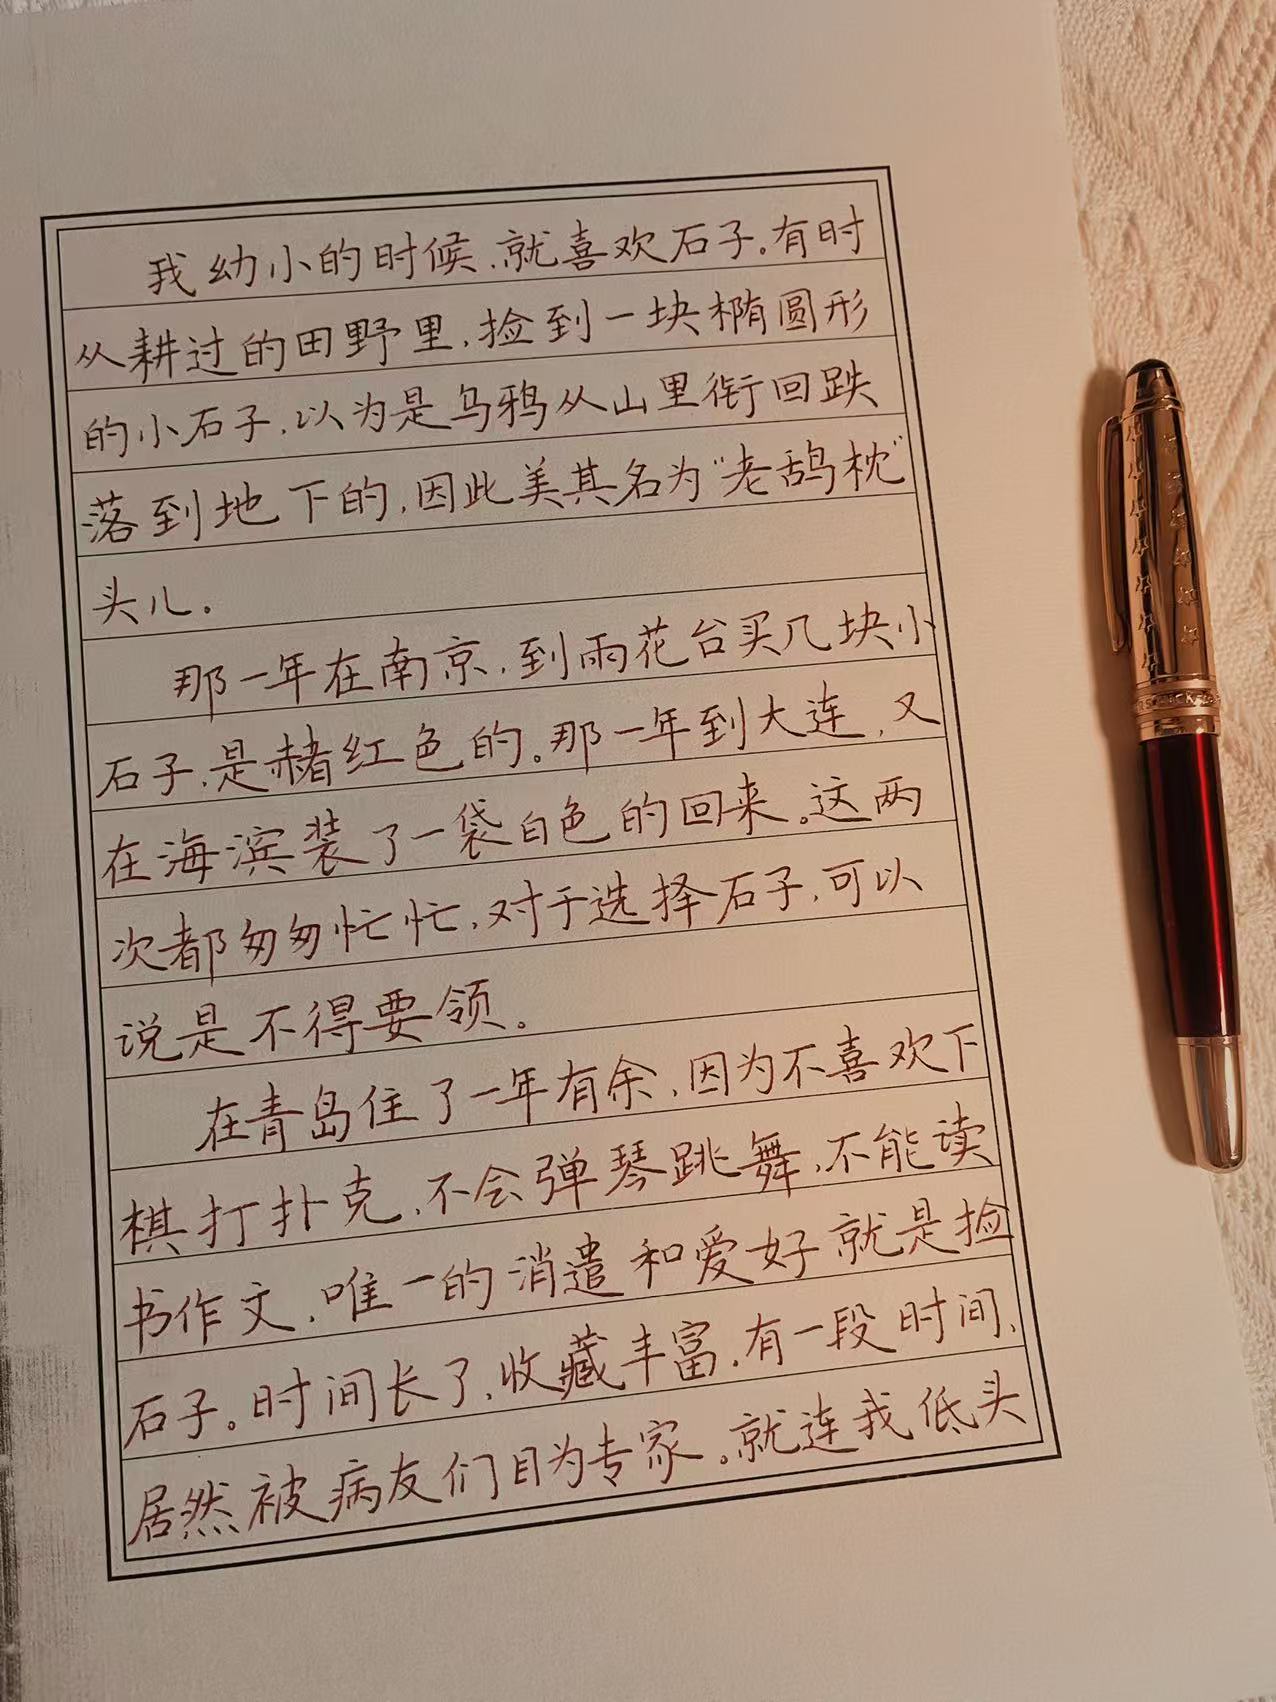 我幼小的时候,就喜欢石子。有时
从耕过的田野里,捡到一块椭圆形
的小石子,以为是乌鸦从山里衔回跌
落到地下的,因此美其名为“老鸹枕”
头儿。
那一年在南京,到雨花台买几块小
石子,是赭红色的。那一年到大连,又
在海滨装了一袋白色的回来。这两
次都匆匆忙忙,对于选择石子,可以
说是不得要领。
在青岛住了一年有余,因为不喜欢下
棋打扑克,不会弹琴跳舞,不能读
书作文,唯一的消遣和爱好就是捡
石子。时间长了,收藏丰富,有一段时间,
居然被病友们目为专家。就连我低头